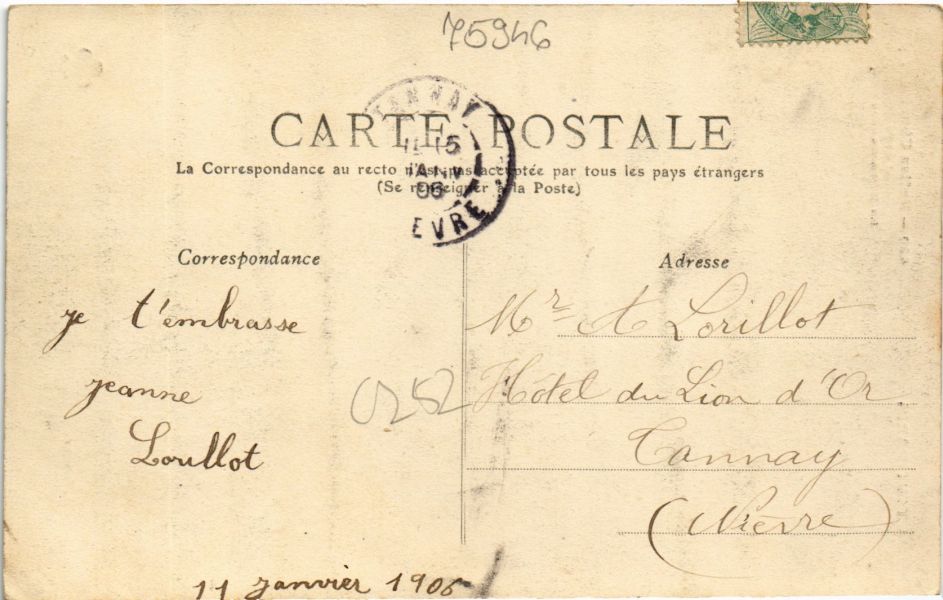 75946
CARTE POSTALE
La Correspondance au recto n'est pas acceptée par tous les pays étrangers
(Se renseigner à la Poste)
TANNAY
15
JANV
06
EVRE
Correspondance
je t'embrasse
jeanne
Lorillot
11 janvier 1906
0252
Adresse
Mr A Lorillot
Hôtel du Lion d'Or
Tannay
(Nièvre)